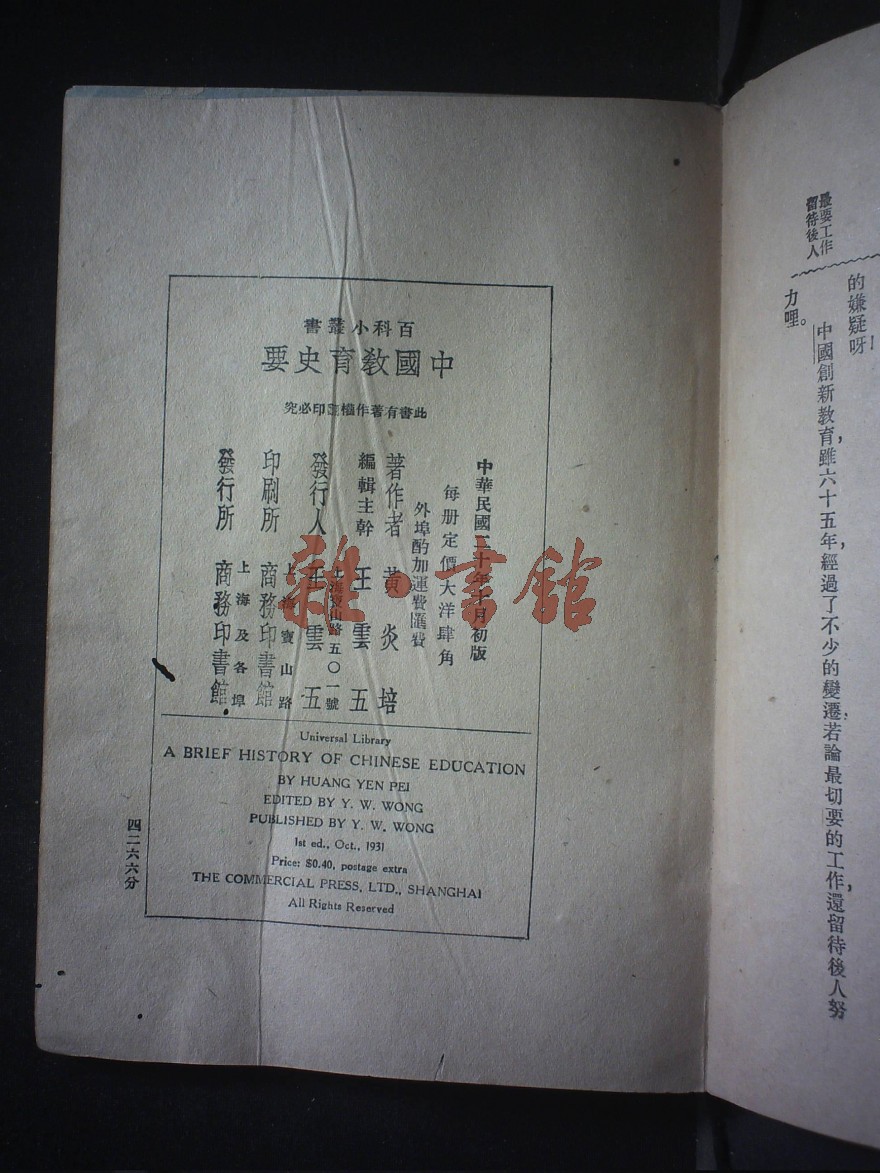 最要工作
留待後人
的嫌疑呀！
中國創新教育，雖六十五年，經過了不少的變遷，若論最切要的工作，還留待後人努
力哩。
百科小叢書
中國教育史要
此書有著作權翻印必究
中華民國二十年十月初版
每册定價大洋肆角
外埠酌加運費匯費
著作者 黃炎培
編輯主幹 王雲五
發行人 王雲五
上海寶山路五〇一號
印刷所 商務印書館
上海寶山路
發行所 商務印書館
上海及各埠
Universal Library
A BRIEF HISTORY OF CHINESE EDUCATION
BY HUANG YEN PEI
EDITED BY Y. W. WONG
PUBLISHED BY Y. W. WONG
1st ed., Oct., 1931
Price: $0.40, postage extra
THE COMMERCIAL PRESS, LTD., SHANGHAI
All Rights Reserved
四二六六分
雜·書館